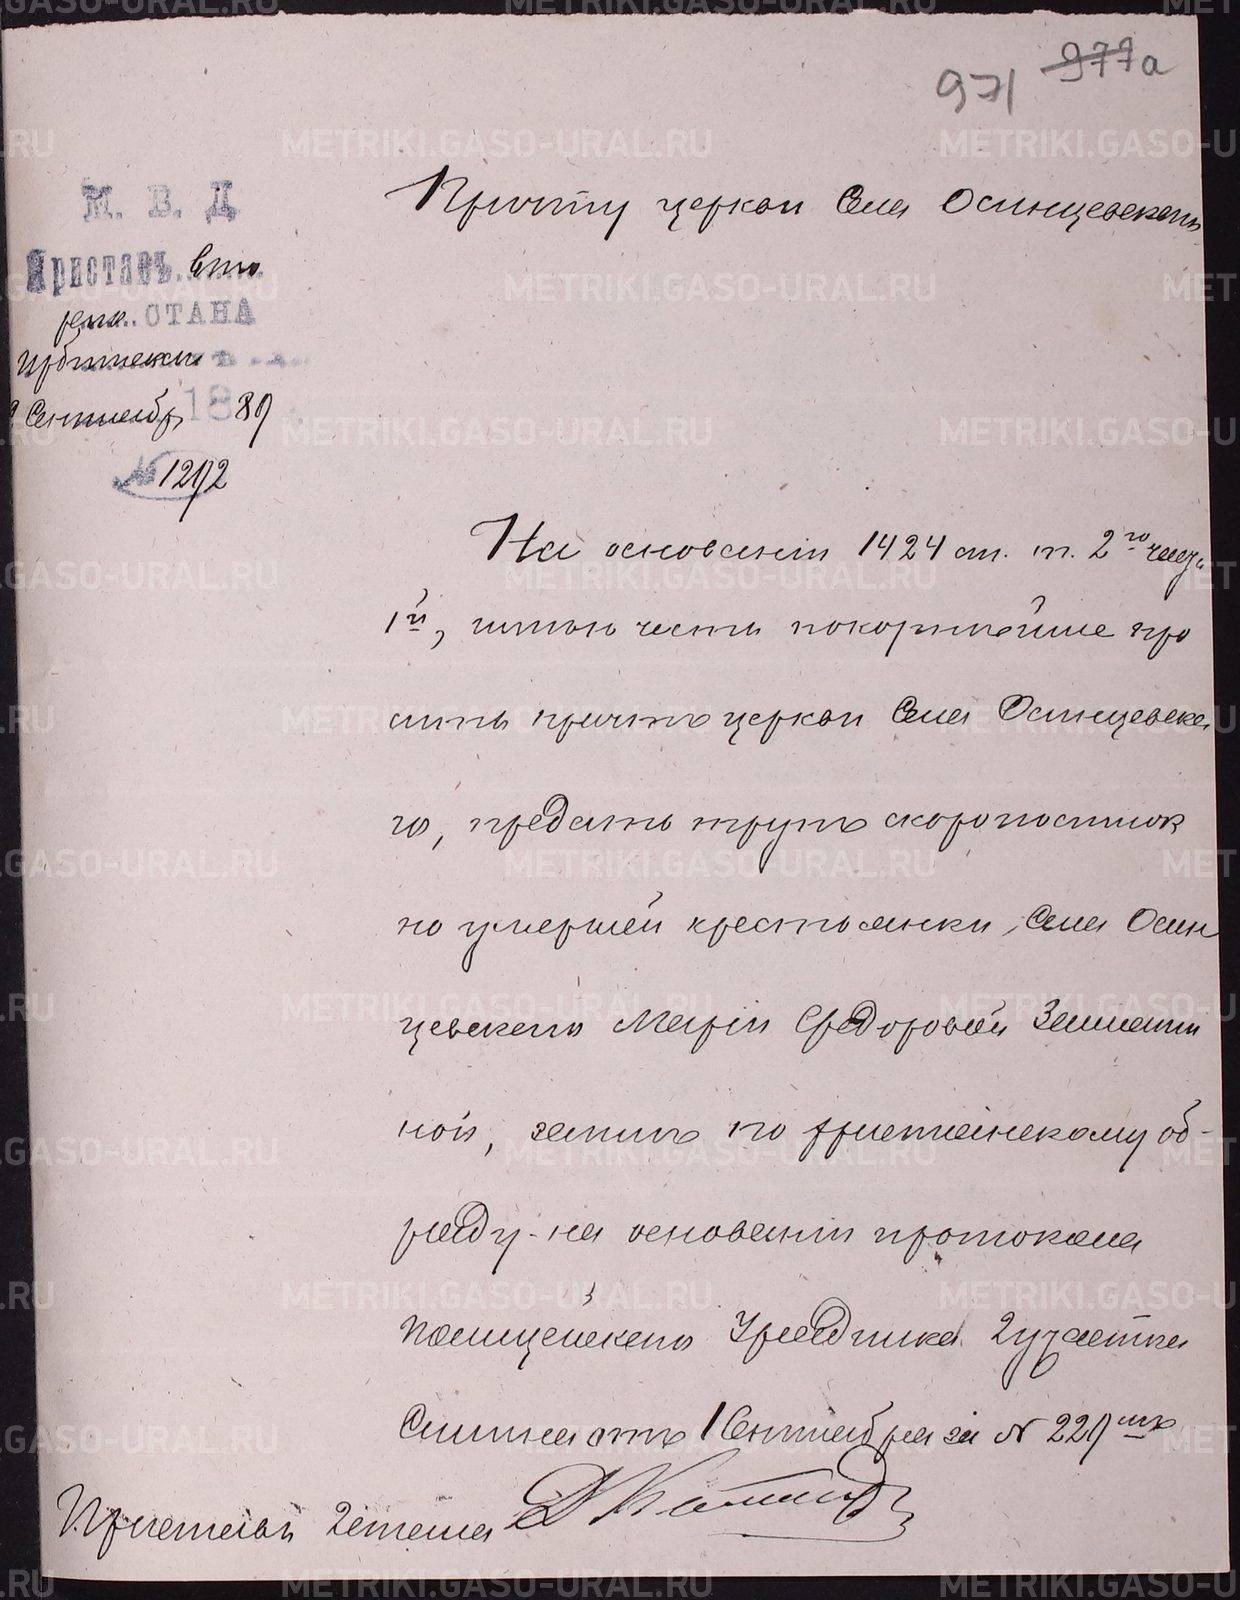 971 977а
М. В. Д
Приставъ вто
раго СТАНА
Ирбитскаго
Сентября 1889
№ 1292
Причту церкви Села Осинцевскаго
На основаніи 1424 ст. т. 2го часть
1й, имѣю честь покорнѣйше про
сить причтъ церкви Села Осинцевска
го, предать трупъ скоропостиж
но умершей крестьянки, Села Осин
цевскаго Маріи Ѳедоровой
ной, землѣ по христіанскому об-
ряду на основаніи протокола
полицейскаго Урядника 2 участка
отъ 1 Сентября за № 229
Приставъ 2 стана
METRIKI.GASO-URAL.RU